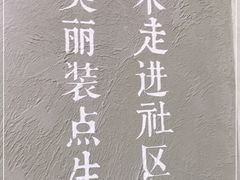 走进社区
美丽装点生